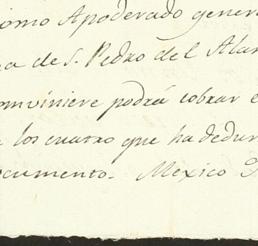 como Apoderado gener
a de S. Pedro del Alam
onviniere podrá cobrar e
los cuatro que ha de du
ocumento. Mexico